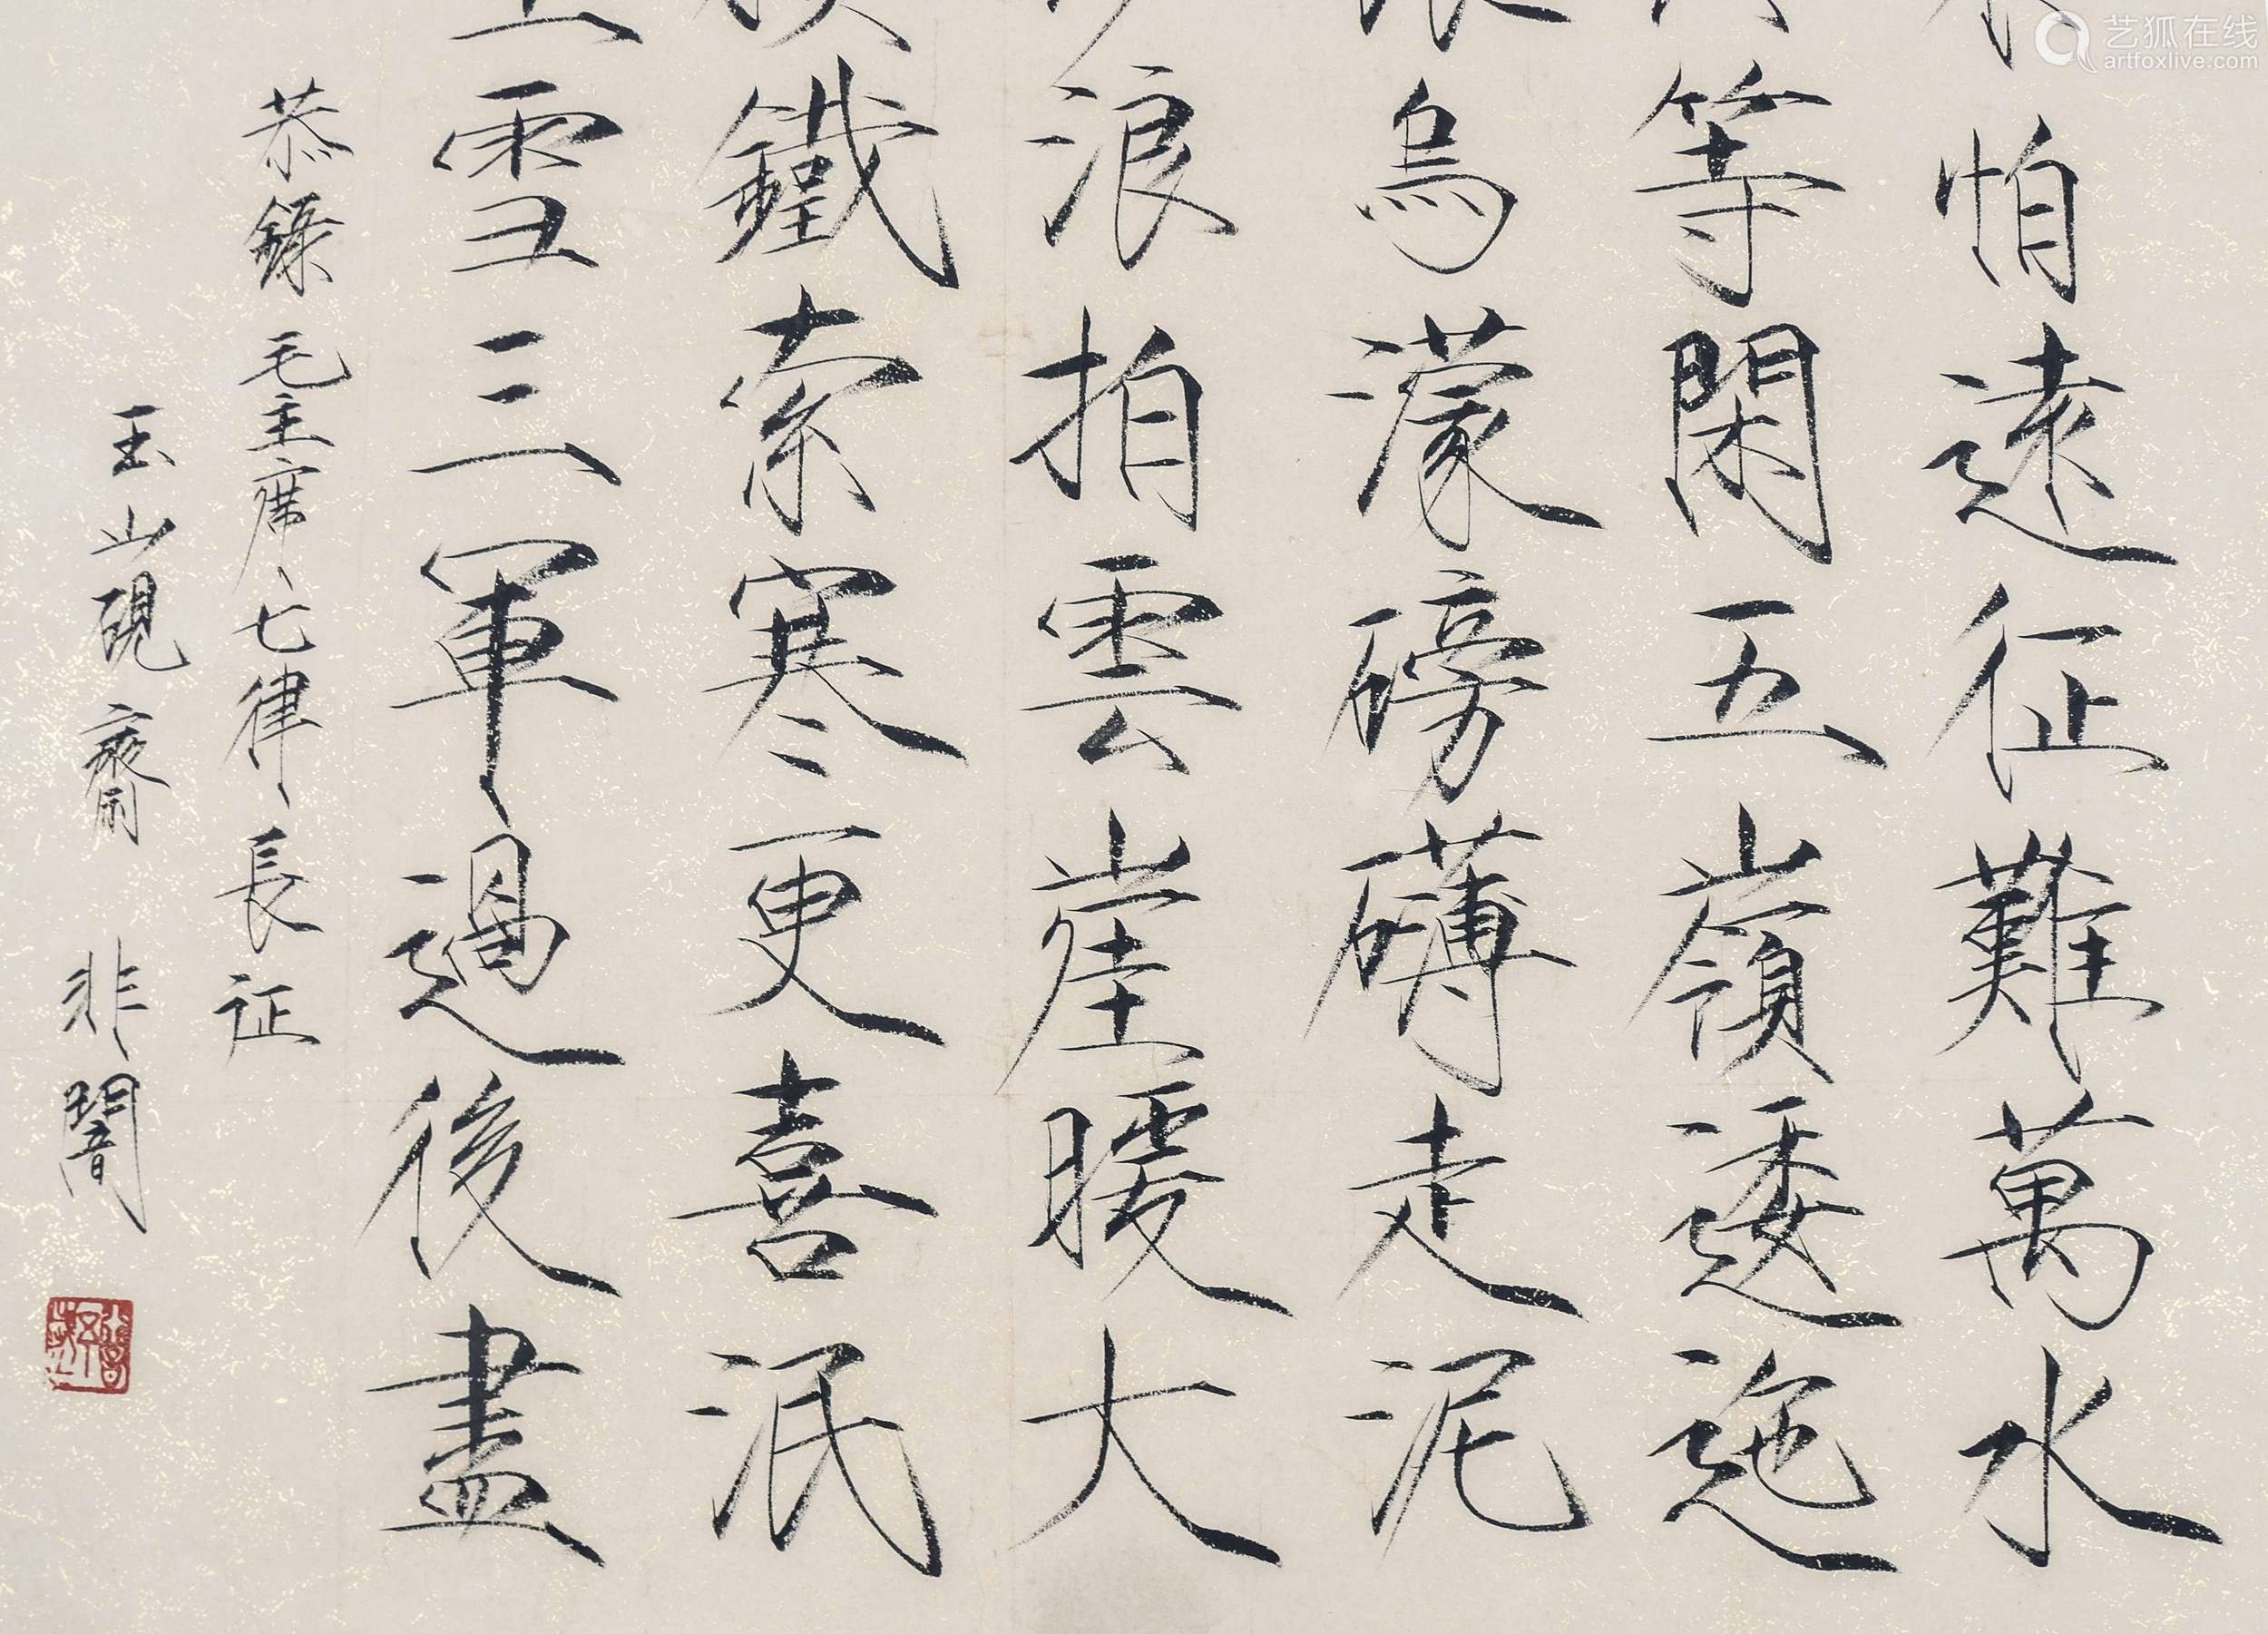 怕遠征難萬水
等閑五嶺逶迤
烏濛磅礴走泥
浪拍雲崖暖大
鐵索寒更喜泯
雪三軍過後盡
恭錄毛主席七律長征
玉山硯齋 非闇
艺狐在线
artfoxlive.com